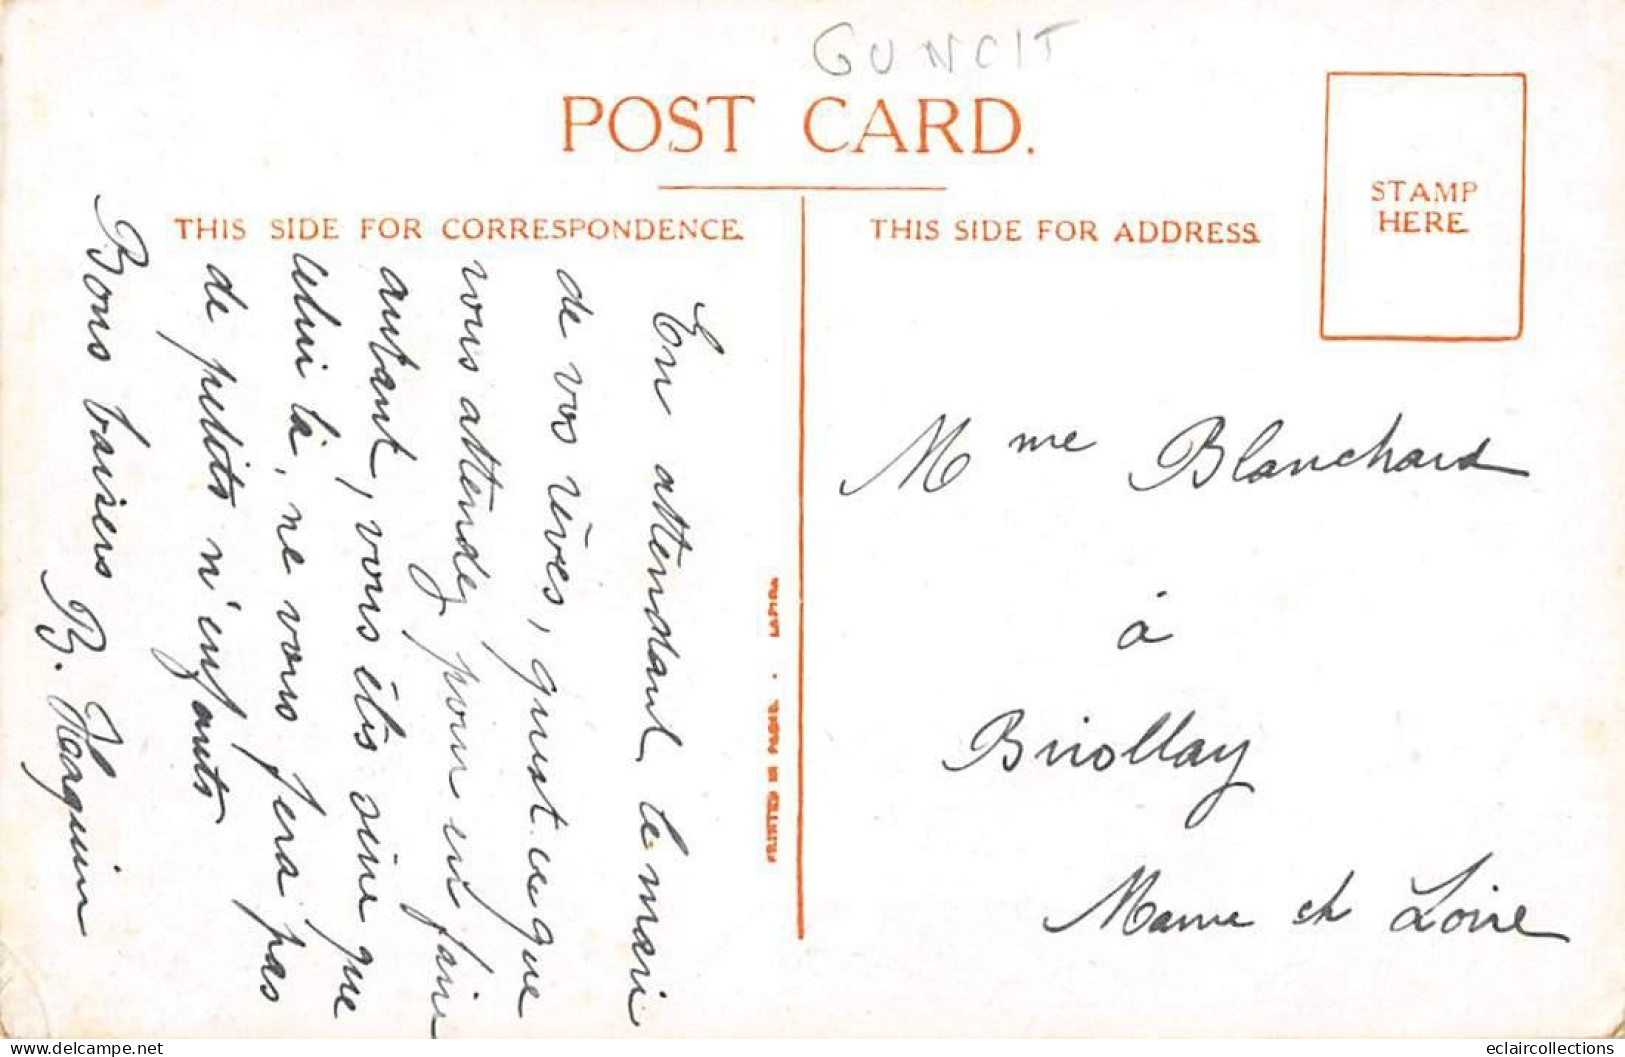 GUNCIT
POST CARD.
THIS SIDE FOR CORRESPONDENCE.
THIS SIDE FOR ADDRESS.
STAMP
HERE.
En attendant le mari
de vos rêves, qu'est ce que
vous attendez pour en faire
autant, vous êtes sûre que
celui là, ne vous fera pas
de petits n'enfants
Bons baisers B.
PRINTED IN PARIS.
Mme Blanchard
à
Briollay
Maine et Loire
eclaircollections